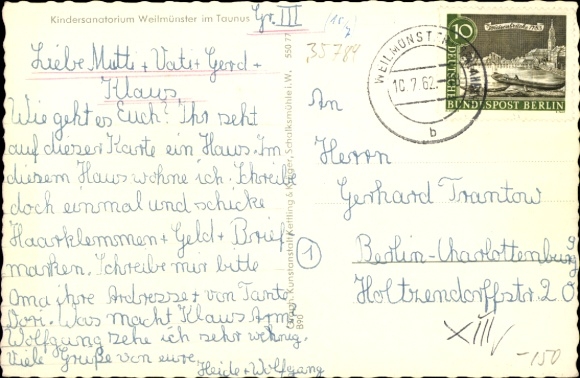 Kindersanatorium Weilmünster im Taunus
Gr. III
Liebe Mutti + Vati + Gerd +
Klaus
Wie geht es Euch? Ihr seht
auf dieser Karte ein Haus. Im
diesem Haus wohne ich. Schreibe
doch einmal und schicke
Haarklemmen + Geld + Brief
marken. Schreibe mir bitte
Oma ihre Ardresse + von Tante
Dori. Was macht Klaus Arm
Wolfgang sehe ich sehr wehnig.
Viele Grüße von eure
Heide + Wolfgang
550 77
Kunstanstalt Kettling & Krüger, Schalksmühle i. W.
1
35784
WEILMÜNSTER
10.7.62.
b
10
DEUTSCHE
BUNDESPOST BERLIN
An
Herrn
Gerhard Trantow
Berlin-Charlottenburg 9
Holtzendorffstr. 20
XIII
-150